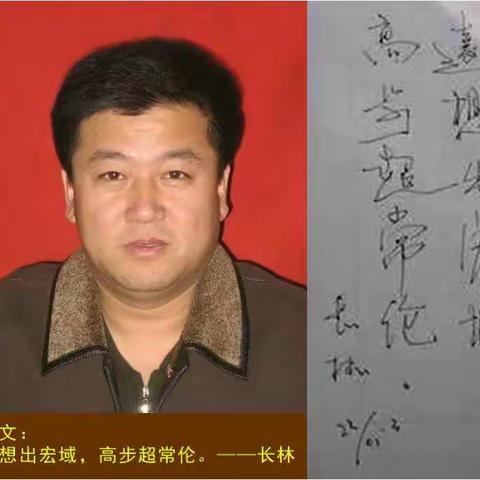 文：
想出宏域，高步超常伦。——长林
遠想出宏域
高步超常伦
长林